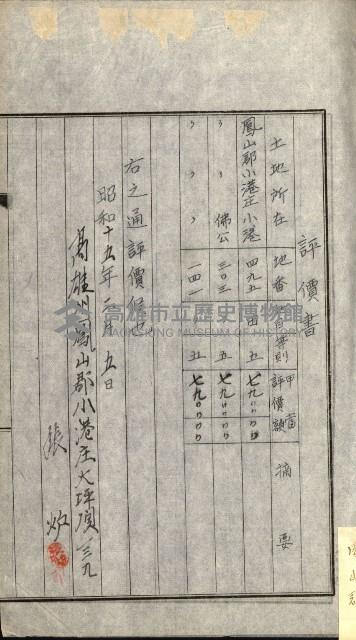 評價書
土地所在 地番 目 等則 甲當評價額 摘要
鳳山郡小港庄小港 四九五 田 五 七九〇〇〇
〃 〃 佛公 三〇三 〃 五 七九〇〇〇
〃 〃 〃 一四一 五 七九〇〇〇
右之通評價候也
昭和十五年 月 五日
高雄州鳳山郡小港庄大坪頂一三九
張
高雄市立歷史博物館
KAOHSIUNG MUSEUM OF HISTORY